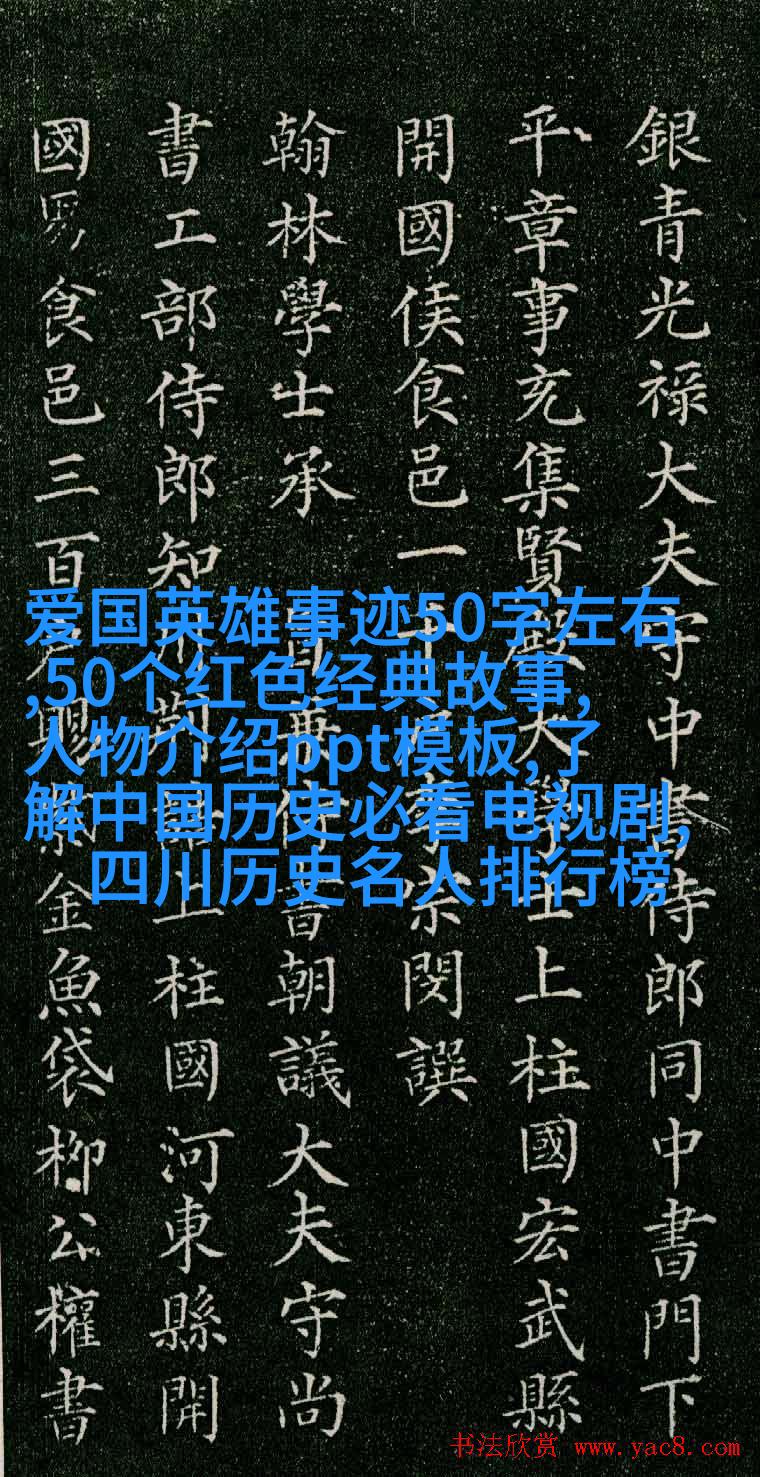 銀青光祿大夫守中書侍郎同中書門下
平章事充集賢殿大學士上柱國宏武縣
開國侯食邑一千宗閔譔
翰林學士承旨兼侍書朝議大夫守尚
書工部侍郎知制上柱國河東縣開
國男食邑三百賜金魚袋柳公權書
爱国英雄事迹50字左右
,50个红色经典故事,
人物介绍ppt模板,了
解中国历史必看电视剧,
四川历史名人排行榜
书法欣赏 www.yac8.com